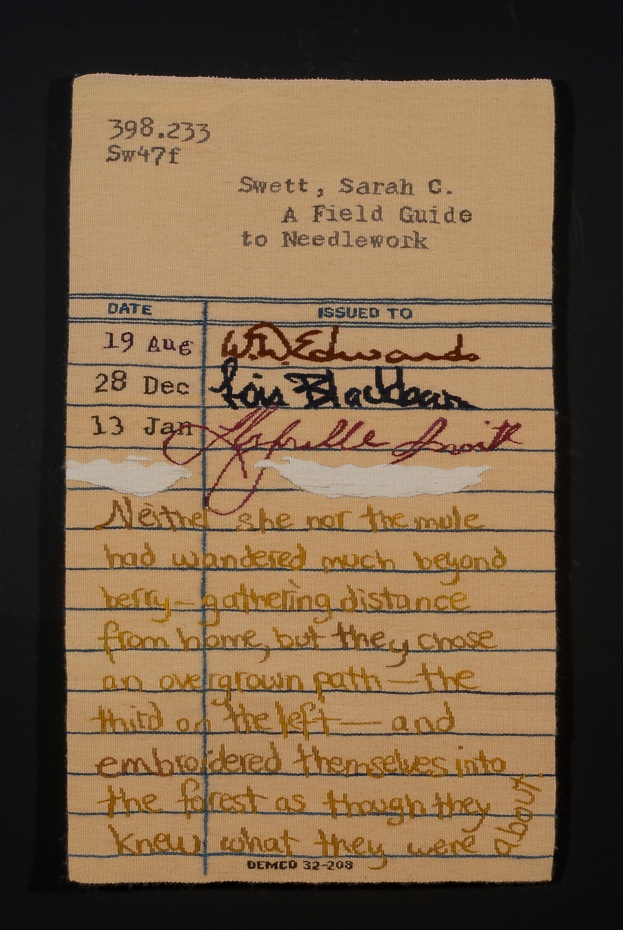 398.233
Sw47f
Swett, Sarah C.
A Field Guide
to Needlework
DATE ISSUED TO
19 Aug W.W. Edwards
28 Dec Lois Blackburn
13 Jan Smith
Neither she nor the mule
had wandered much beyond
berry—gathering distance
from home, but they chose
an overgrown path—the
third on the left—and
embroidered themselves into
the forest as though they
knew what they were about.
DEMCO 32-208